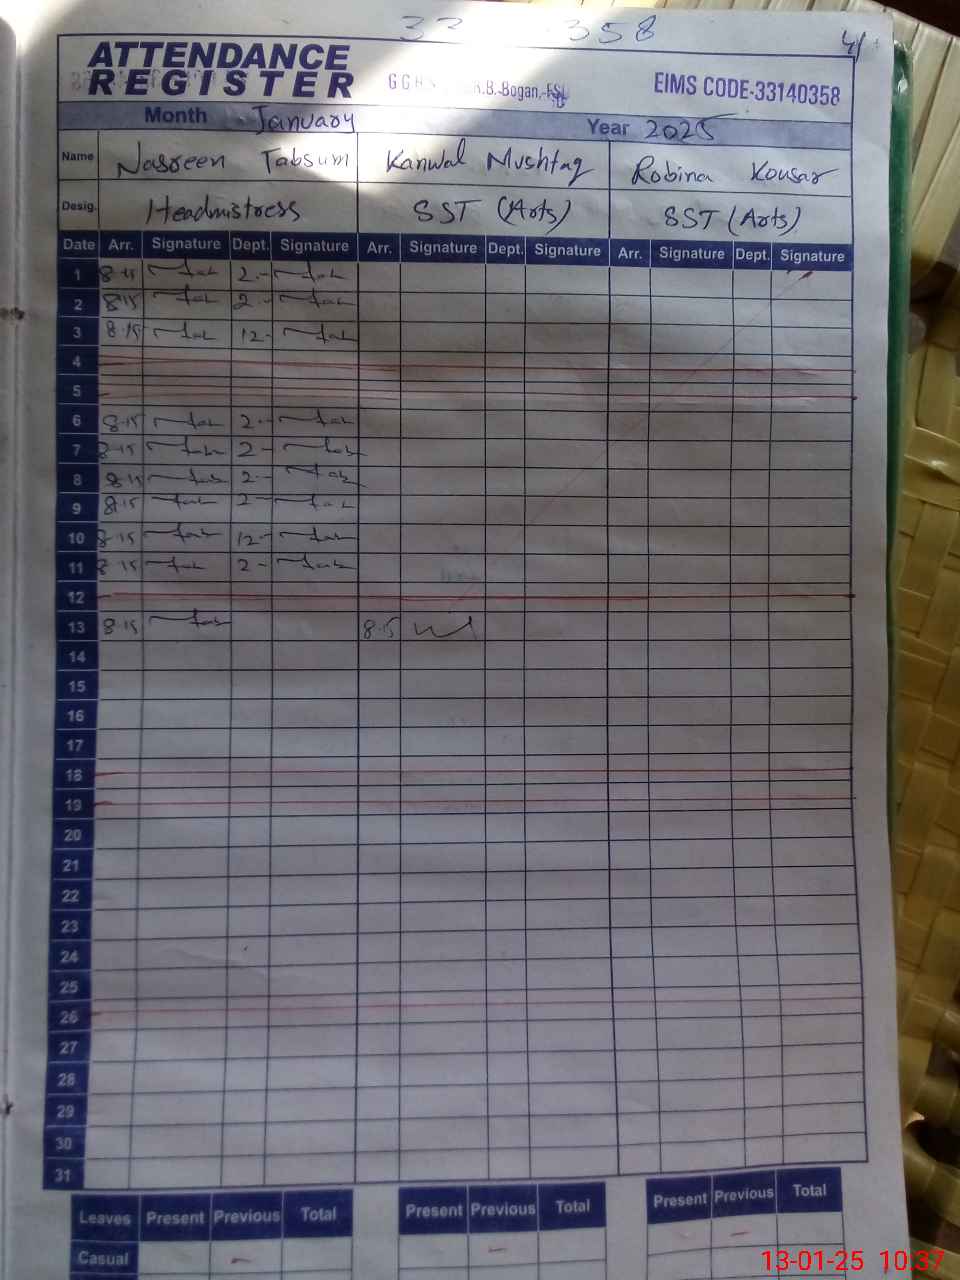 358
41
ATTENDANCE
REGISTER
.B.-Bogan,-FSD
EIMS CODE-33140358
Month January
Year 2025
Name Nasreen Tabsum Kanwal Mushtaq Robina Kousar
Desig. Headmistress SST (Arts) SST (Arts)
Date Arr. Signature Dept. Signature Arr. Signature Dept. Signature Arr. Signature Dept. Signature
1 8-15 2-
2 8-15 2-
3 8-15 12-
4
5
6 8-15 2-
7 8-15 2-
8 8-15 2-
9 8-15 2-
10 8-15 12-
11 8-15 2-
12
13 8-15 8-15
14
15
16
17
18
19
20
21
22
23
24
25
26
27
28
29
30
31
Leaves Present Previous Total Present Previous Total Present Previous Total
Casual - - -
13-01-25 10:37